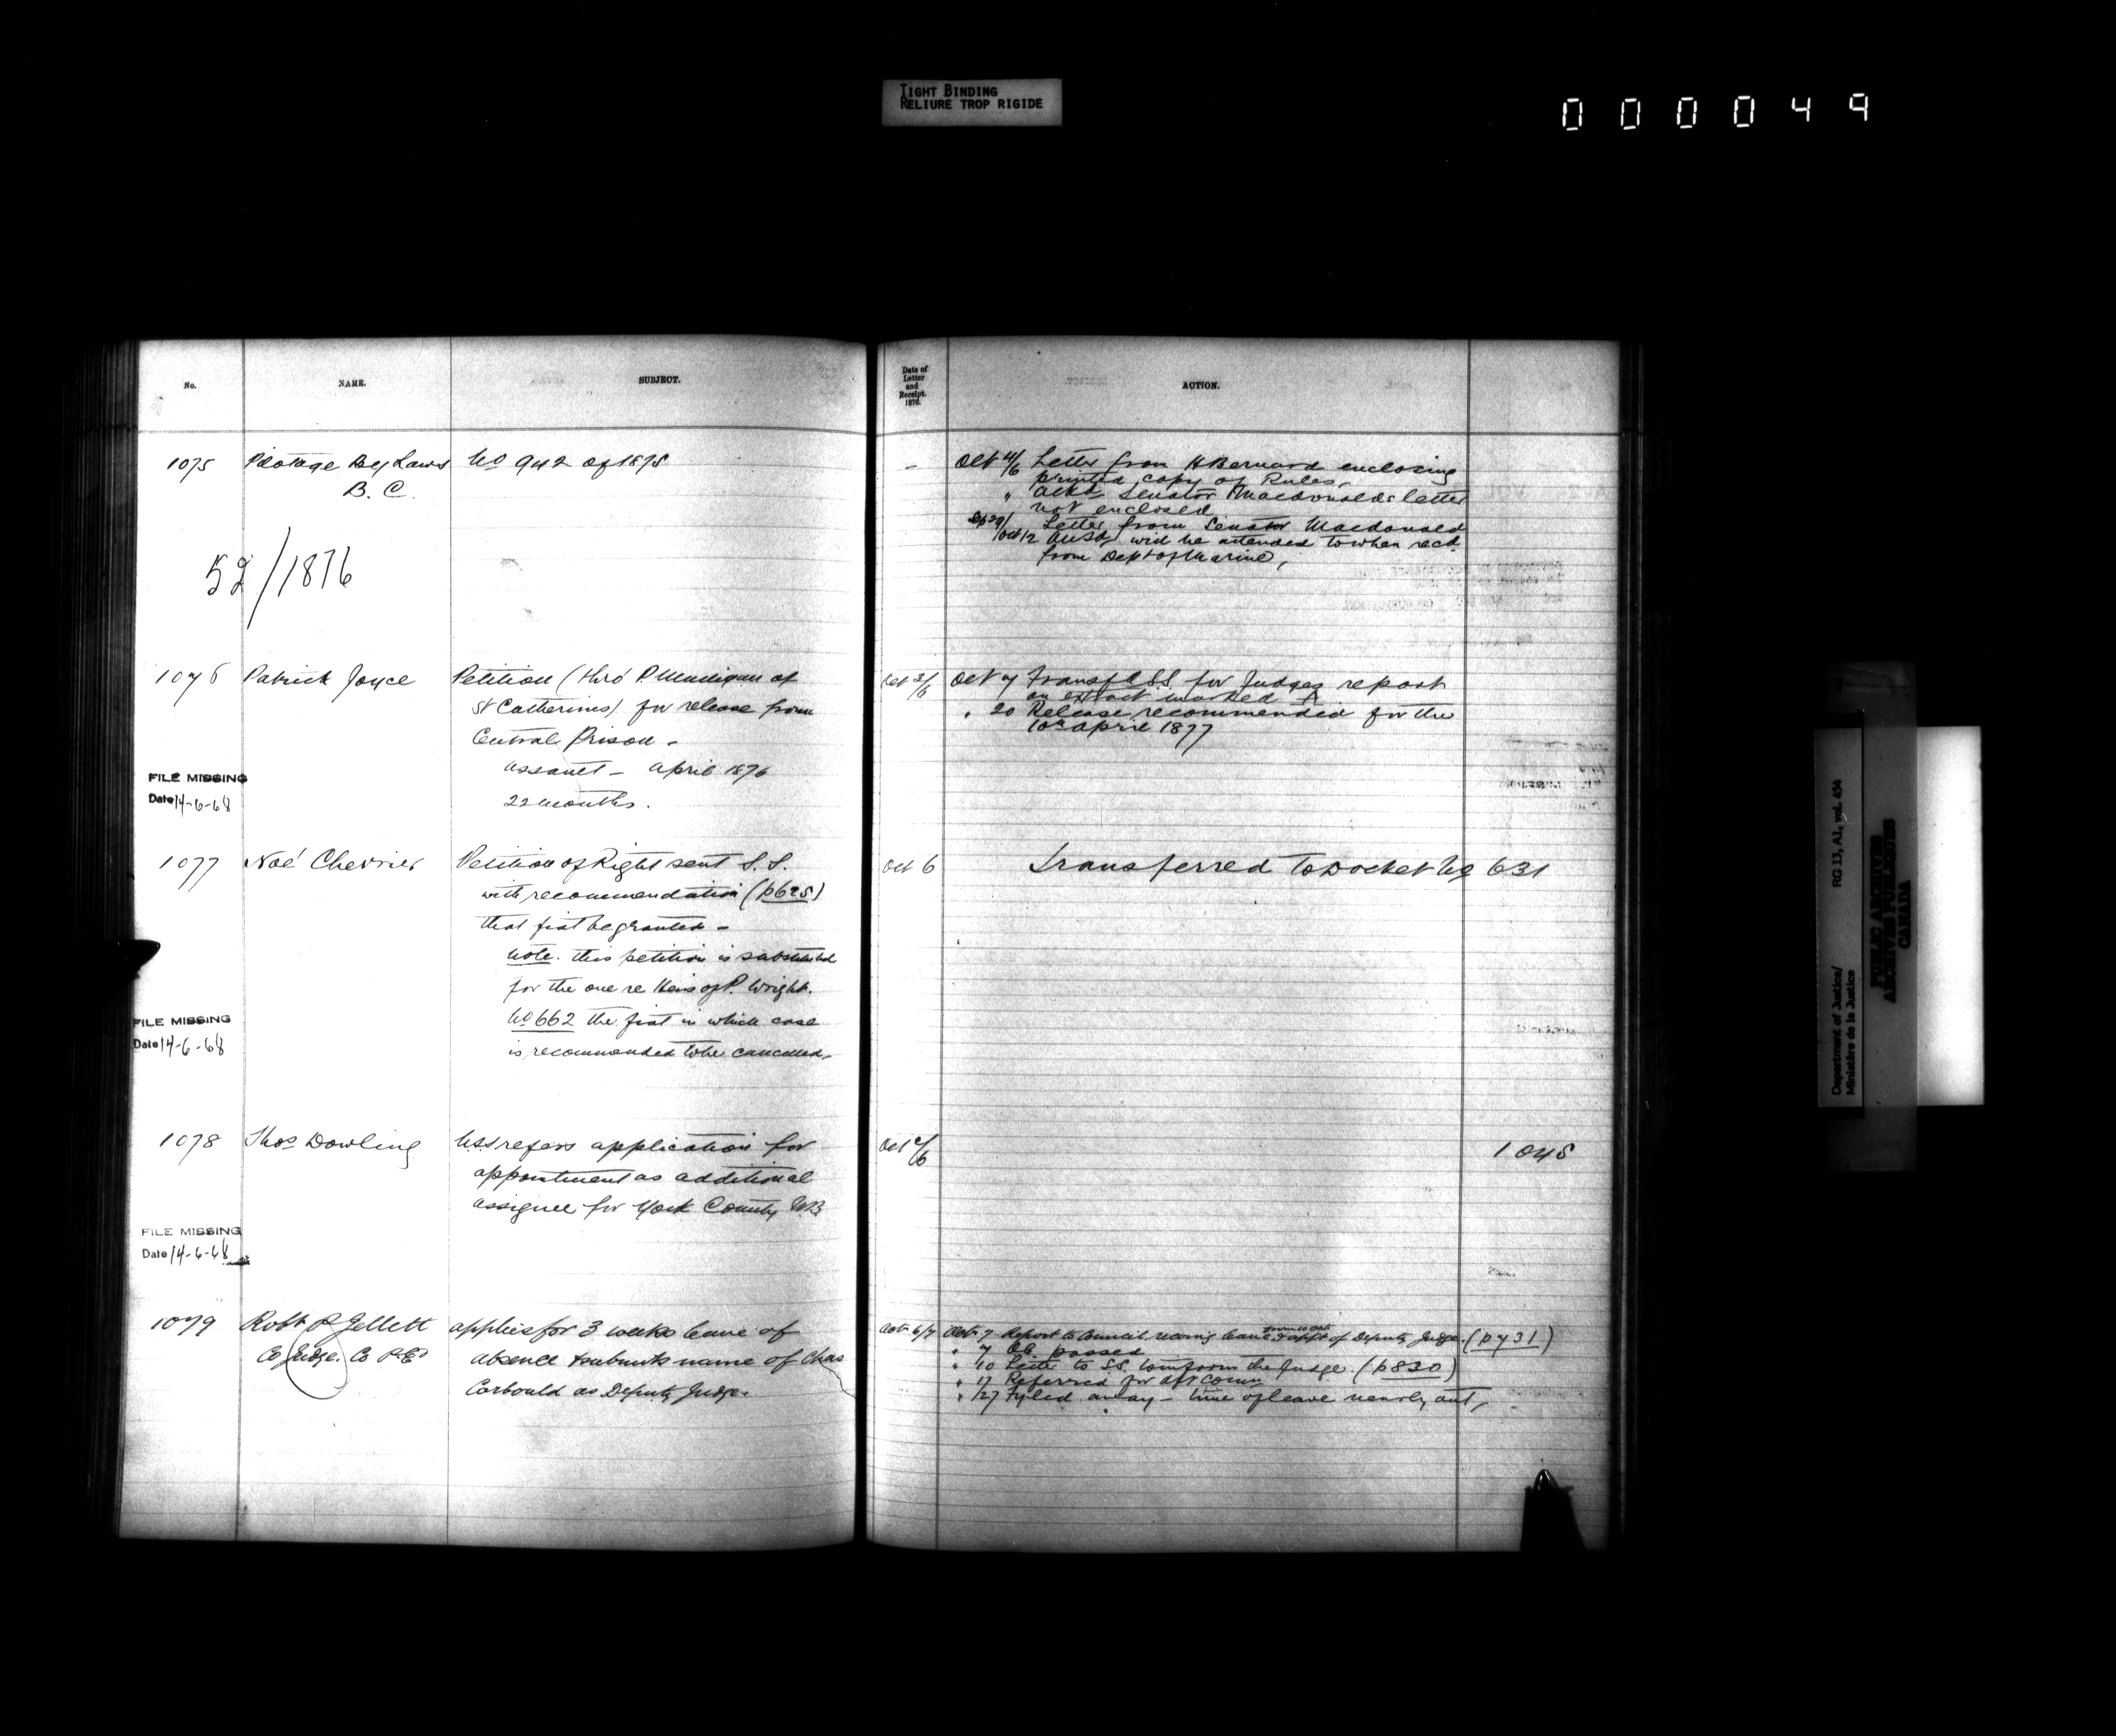 TIGHT BINDING
RELIURE TROP RIGIDE
000049
No.
NAME.
SUBJECT.
1075
Pilotage Bey Laws
B. C.
No 942 of 1875
52/1876
1076
Patrick Joyce
Petition (thro' P. Mulligan of
St Catherines) for release from
Central Prison -
Assault - April 1876
22 months.
FILE MISSING
Date 14-6-68
1077
Noé Chevrier
Petition of Right sent S.S.
with recommendation (p625)
that fiat be granted -
Note. this petition is substituted
for the one re Heirs of P. Wright.
No 662 the fiat in which case
is recommended to be cancelled.
FILE MISSING
Date 14-6-68
1078
Thos Dowling
USS refers application for
appointment as additional
assignee for York County NB
FILE MISSING
Date 14-6-68
1079
Robt P Jellett
Co Judge. Co P. Ed
applies for 3 weeks leave of
absence & submits name of Chas
Corbould as Deputy Judge.
Date of
Letter
and
Receipt.
1876.
ACTION.
- Oct 4/6 Letter from H Bernard enclosing
printed copy of Rules,
" Ackd Senator Macdonalds letter
not enclosed
Sep 29/ Letter from Senator Macdonald
Oct 12 Ansd, will be attended to when recd
from Dept of Marine,
Oct 3/6
Oct 7 Transfd S.S. for Judges report
on extract marked A
" 20 Release recommended for the
10th April 1877
Oct 6
Transferred to Docket No 631
Oct /6
1045
Oct 6/7
Oct 7 Report to Council recomg leave from 10 Oct & appt of Deputy Judge. (p 731)
" 7 OC. passed
" 10 Letter to SS. to inform the Judge. (p830)
" 17 Referred for
" 27 Fyled away - time of leave nearly out,
Department of Justice/
Ministère de la Justice
RG 13, A1, vol. 454
PUBLIC ARCHIVES
ARCHIVES PUBLIQUES
CANADA